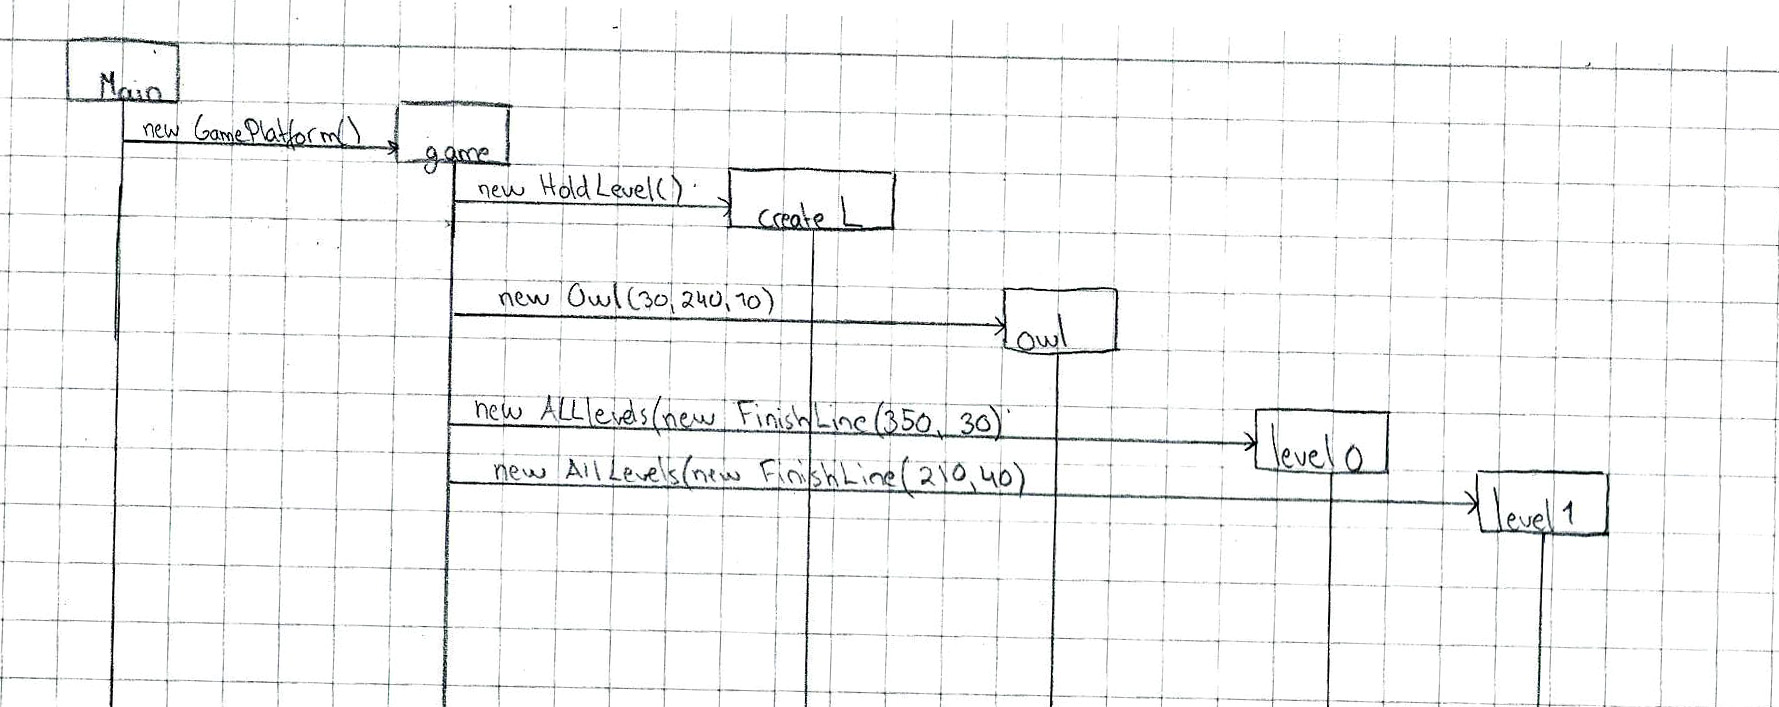 Main
new GamePlatform()
game
new HoldLevel()
create L
new Owl(30,240,70)
owl
new ALLlevels(new FinishLine(350, 30)
level 0
new AllLevels(new FinishLine(210,40)
level 1